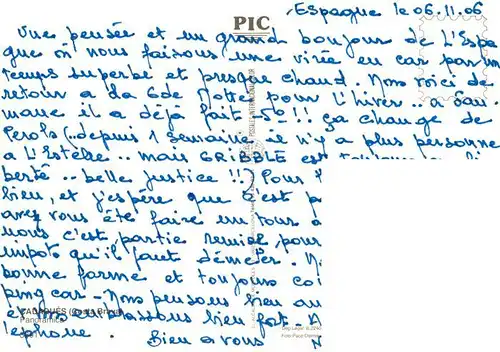 PIC
Espagne le 06.11.06
Une pensée et un grand bonjour de L'Espa
gne où nous faisons une virée en car par un
temps superbe et presque chaud. Nous voici de
retour a La Gde Motte pour L'hiver.. Sau
mane il a déjà fait -5°!! ça change de
Perols (.. depuis 1 semaine il n'y a plus personne
a L'Estèle.. mais GRIBBLE est toujours en li
berté.. belle justice !!) Pour
bien, et j'espère que c'est
avez vous été faire un tour
nous c'est partie remise pour
impots qu'il faut
bonne forme et toujours
ping car - Nous pensons bien
et vous embrassons bien fort.
léphone. Bien a vous
CADAQUÉS (Costa Brava)
Panorámica